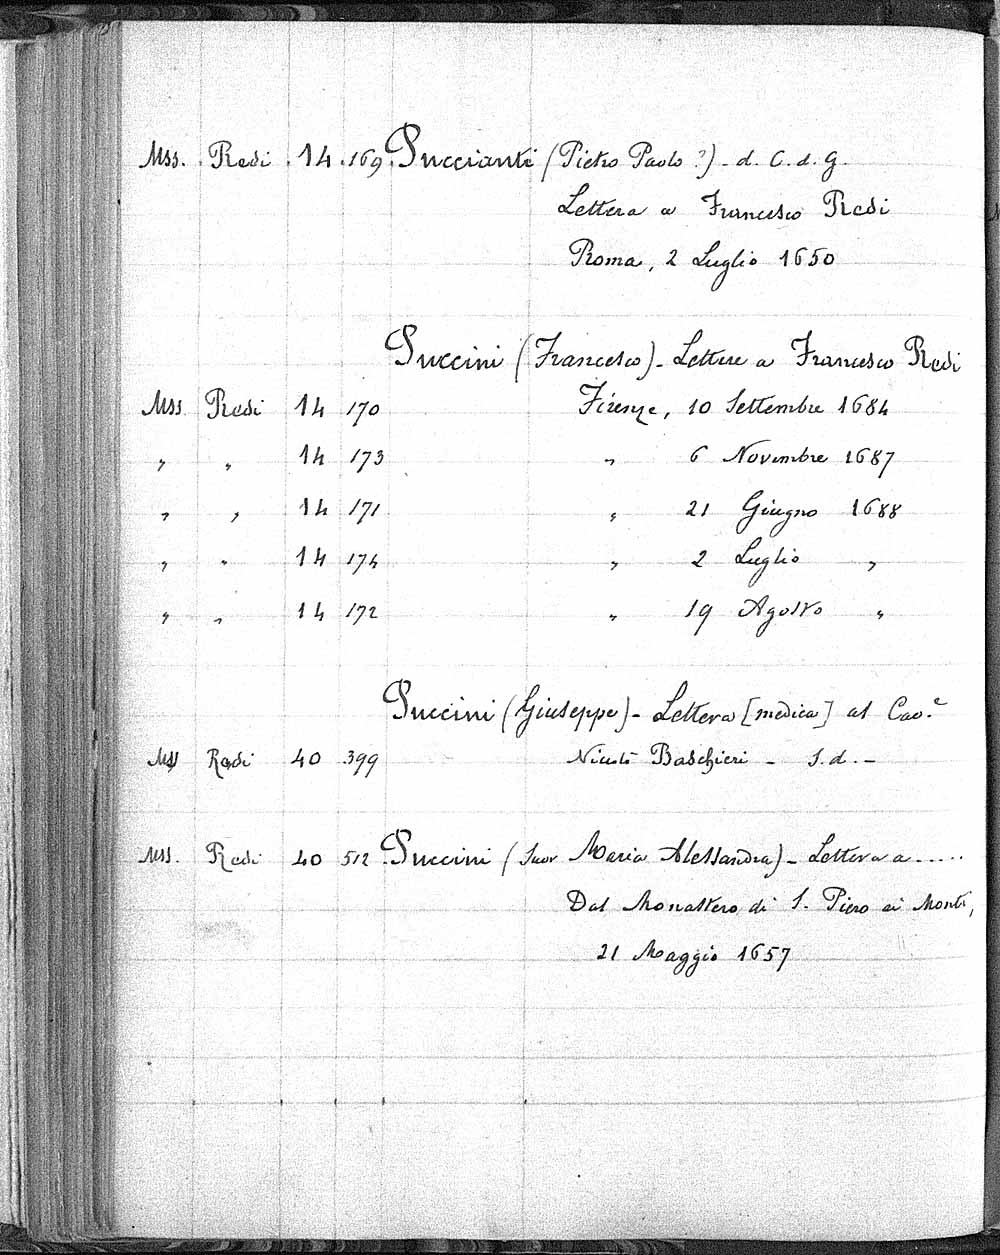 Mss. Redi 14 169 Puccianti (Pietro Paolo ?) - d. C. d. G.
Lettera a Francesco Redi
Roma, 2 Luglio 1650
Puccini (Francesco) - Lettere a Francesco Redi
Mss Redi 14 170 Firenze, 10 Settembre 1684
" " 14 173 " 6 Novembre 1687
" " 14 171 " 21 Giugno 1688
" " 14 174 " 2 Luglio "
" " 14 172 " 19 Agosto "
Puccini (Giuseppe) - Lettera [medica] al Cav.e
Mss Redi 40 399 Niccolò Baschieri - S. d. -
Mss. Redi 40 512 Puccini (Suor Maria Alessandra) - Lettera a .....
Dal Monastero di S. Piero ai Monti,
21 Maggio 1657